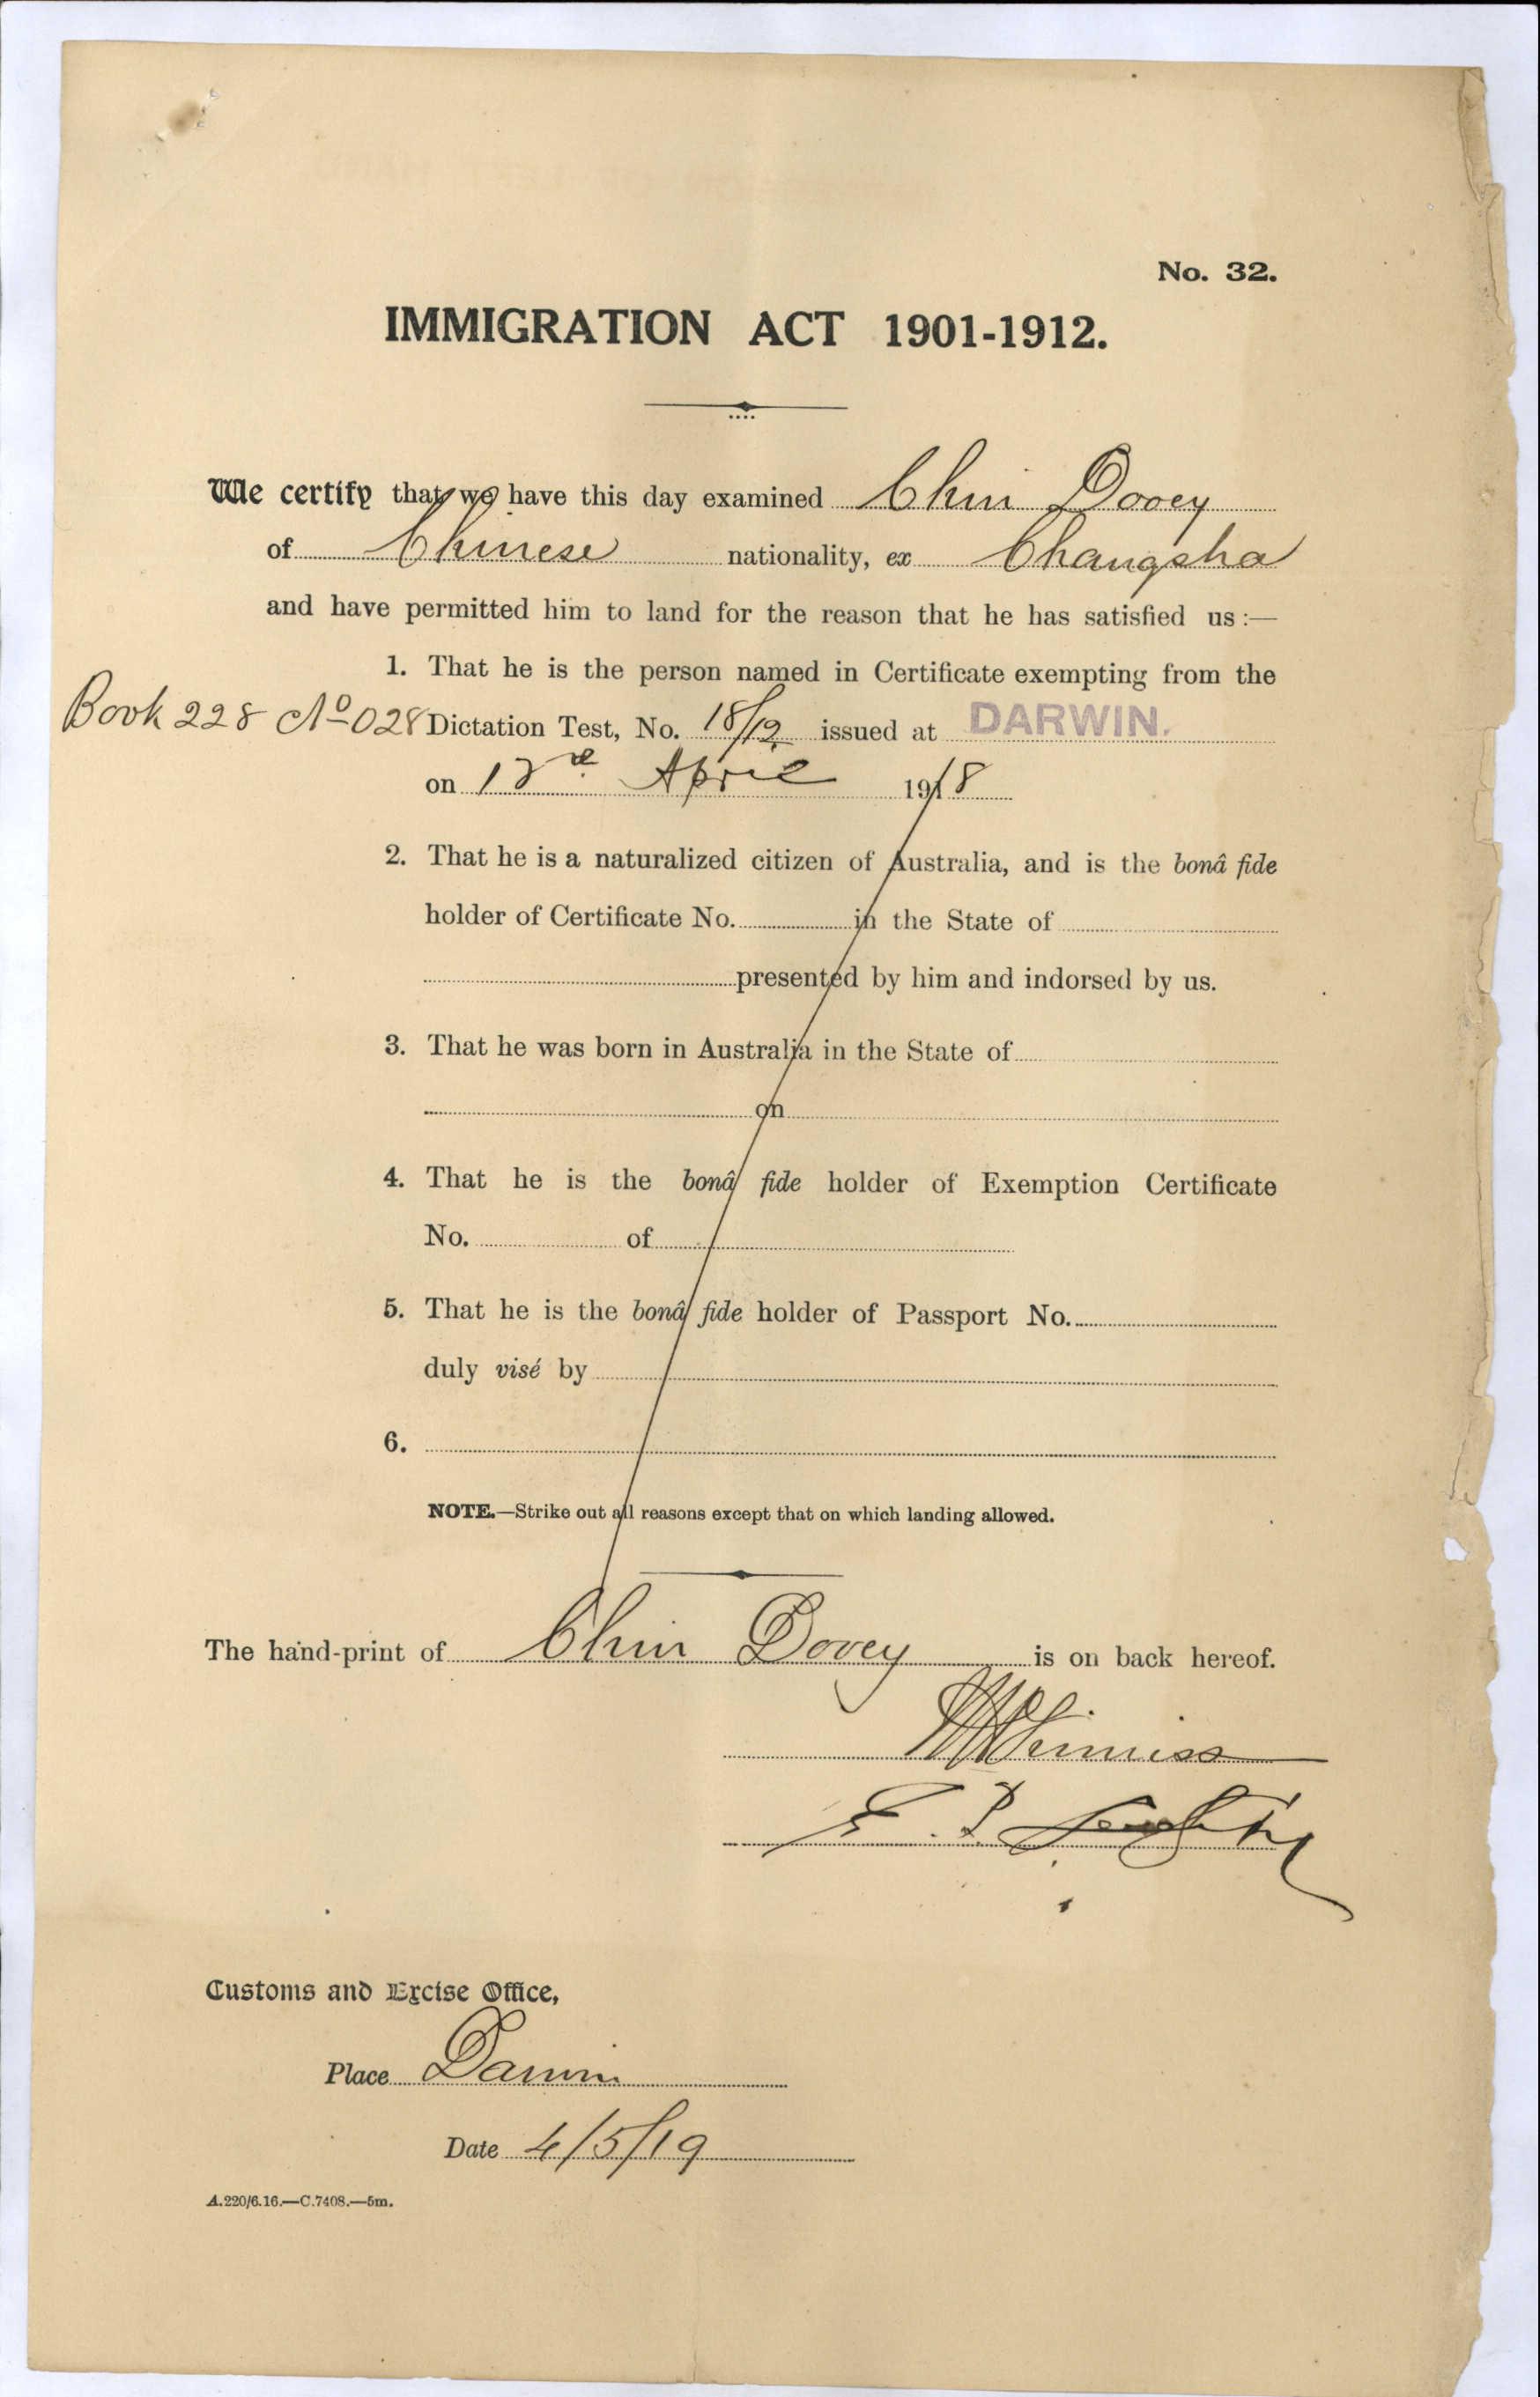 No. 32.
IMMIGRATION ACT 1901-1912.
We certify that we have this day examined Chin Dovey
of Chinese nationality, ex Changsha
and have permitted him to land for the reason that he has satisfied us :—
1. That he is the person named in Certificate exempting from the
Book 228 No 028 Dictation Test, No. 18/12 issued at DARWIN.
on April 1918
2. That he is a naturalized citizen of Australia, and is the bonâ fide
holder of Certificate No. in the State of
presented by him and indorsed by us.
3. That he was born in Australia in the State of
on
4. That he is the bonâ fide holder of Exemption Certificate
No. of
5. That he is the bonâ fide holder of Passport No.
duly visé by
6.
NOTE.—Strike out all reasons except that on which landing allowed.
The hand-print of Chin Dovey is on back hereof.
Customs and Excise Office,
Place Darwin
Date 4/5/19
A.220/6.16.—C.7408.—5m.